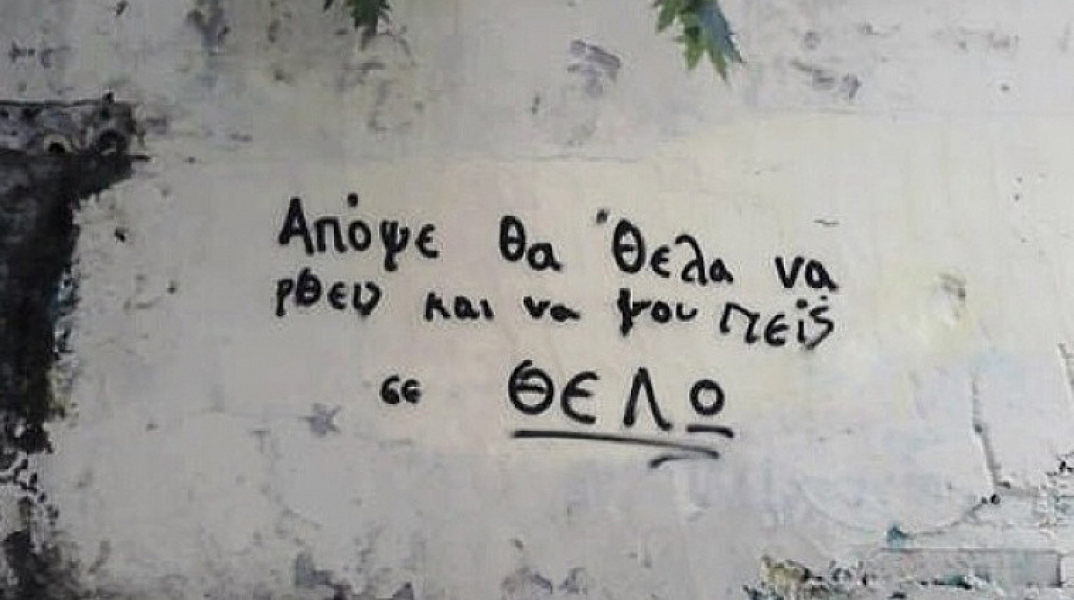 Απόψε θα 'θελα να
ρθεις και να μου πεις
“ ΘΕΛΩ